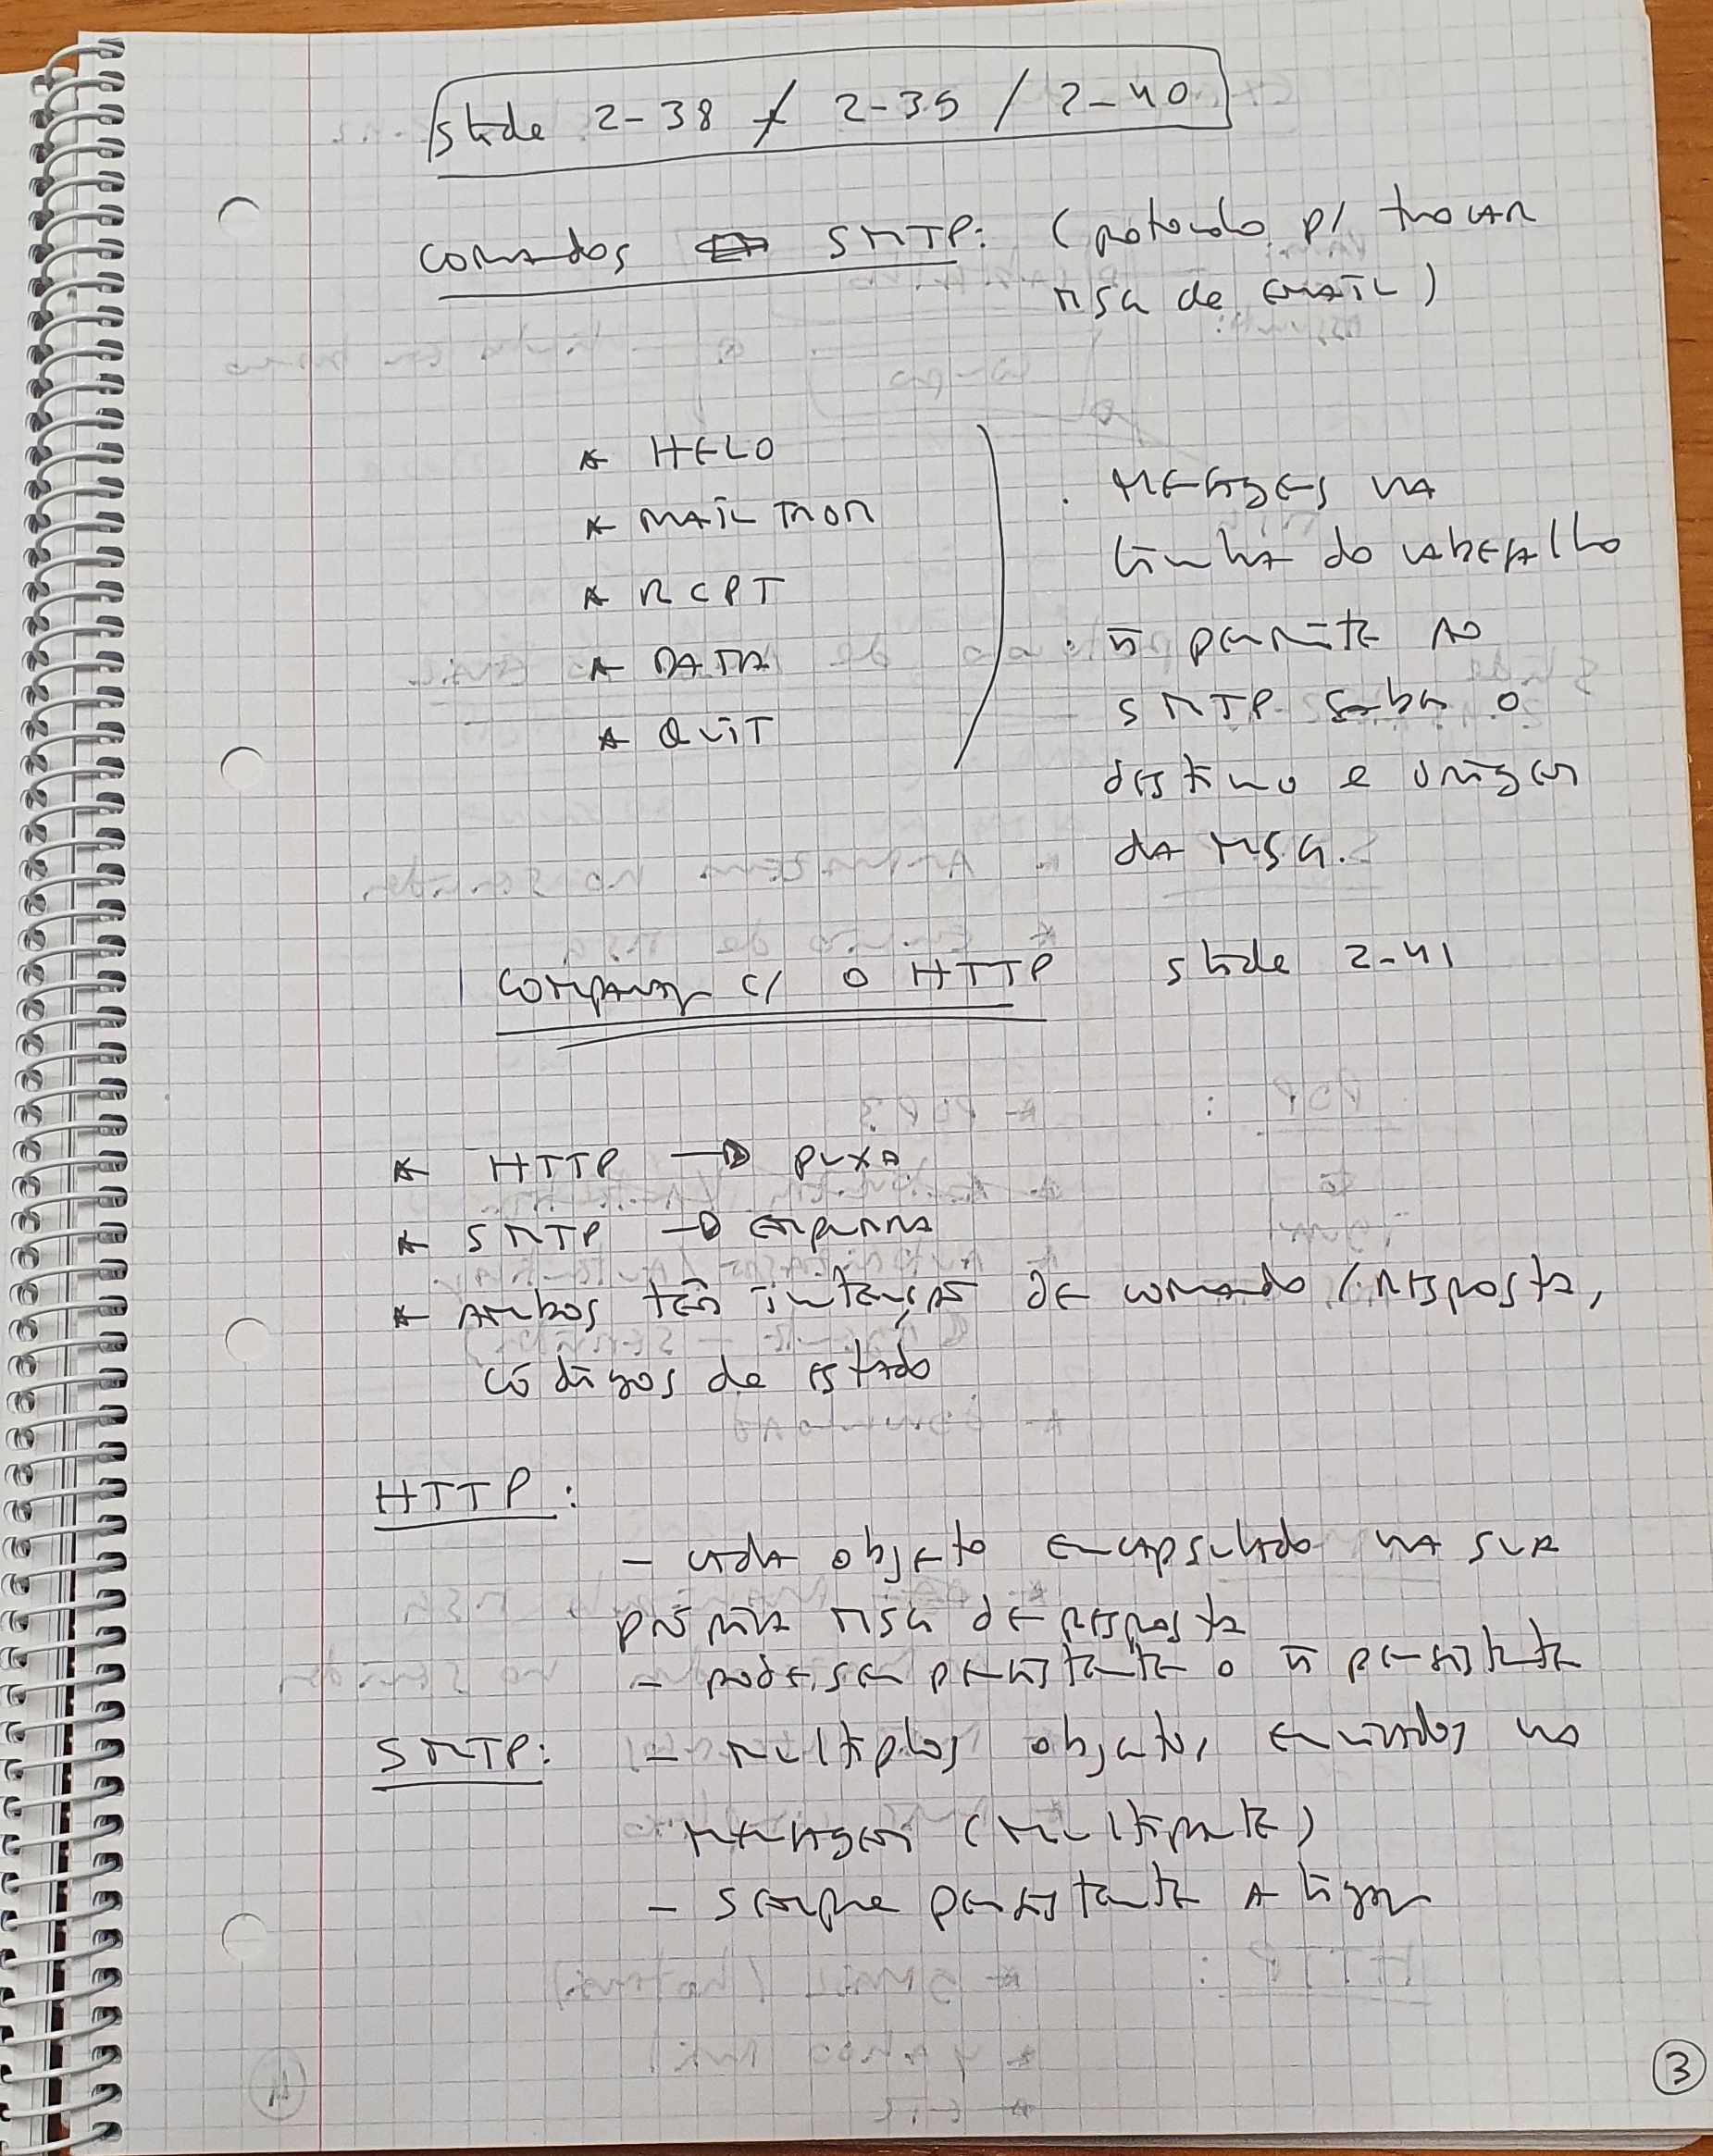 slide 2-38 / 2-39 / 2-40
comandos SMTP: (protocolo p/ trocar
MSG de EMAIL)
* HELO
* MAIL FROM
* RCPT
* DATA
* QUIT
. na
linha do cabeçalho
. ñ permite ao
SMTP saba o
destino e origem
da MSG.
comparaç c/ o HTTP slide 2-41
* HTTP → puxa
* SMTP → empurra
* Ambos têm interação de comando / resposta,
códigos de estado
HTTP:
- cada objeto encapsulado na sua
própria MSG de resposta
- pode ser persistente o ñ persistente
SMTP: - multiplos objetos enviados no
mensagem (multiparte)
- sempre persistente a ligaç
3